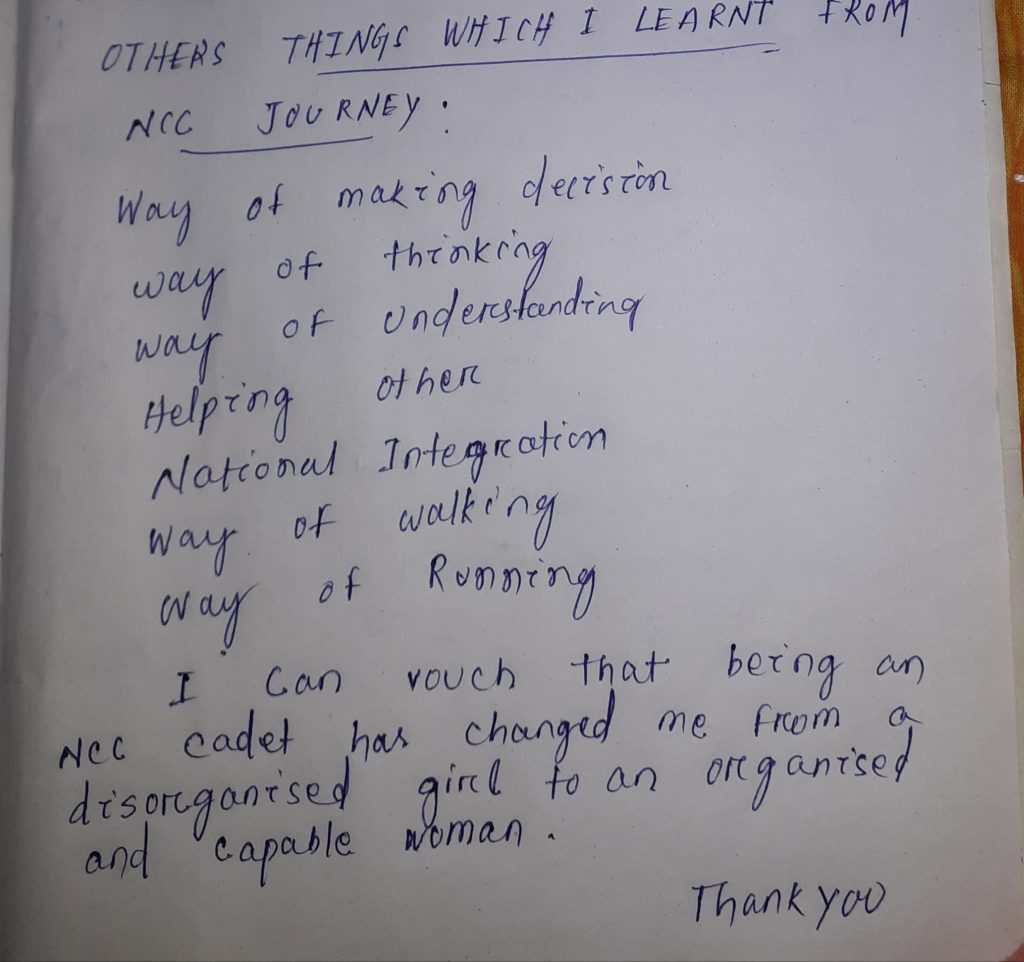 OTHERS THINGS WHICH I LEARNT FROM
NCC JOURNEY :
Way of making decision
way of thinking
way of Understanding
Helping other
National Integration
Way of walking
way of Running
I Can vouch that being an
NCC cadet has changed me from a
disorganised girl to an organised
and capable woman .
Thank you